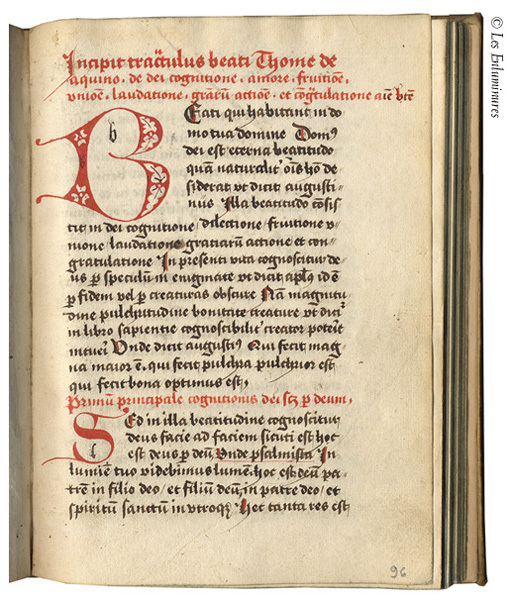 Incipit tractulus beati Thome de
aquino . de dei cognitione . amore . fruitiōe .
vnioē . laudatione . grāꝝ actiōe . et cōgratulatione
Beati qui habitant in do
b
mo tua domine Domꝰ
dei est eterna beatitudo
quā naturalit' oīs hō de-
siderat vt dicit augusti-
nus Illa beatitudo cōsis
tit in dei cognitione / dilectione / fruitione v-
nione / laudatione gratiarum actione et con-
gratulatione In presenti vita cognoscitur de-
us ꝑ speculū in enigmate vt dicit apl'us id ē
ꝑ fidem vel ꝑ creaturas obscure Nā magnitu-
dine pulchritudine bonitate creature vt dicit'
in libro sapientie cognoscibilit' creator poterit
intueri Vnde dicit augustiꝰ Qui fecit mag
na maior ē . qui fecit pulchra pulchrior est
qui fecit bona optimus est /
Primū principale cognitionis dei scꝫ ꝑ deum /
Sed in illa beatitudine cognoscitur
s
deus facie ad faciem sicuti est hoc
est deus ꝑ deū Vnde psalmista In
lumīe tuo videbimus lumē hoc est deū pa-
trē in filio deo / et filiū deū in patre deo / et
spiritū sanctū in vtroqꝫ Hec tanta res est
96
© Les Enluminures